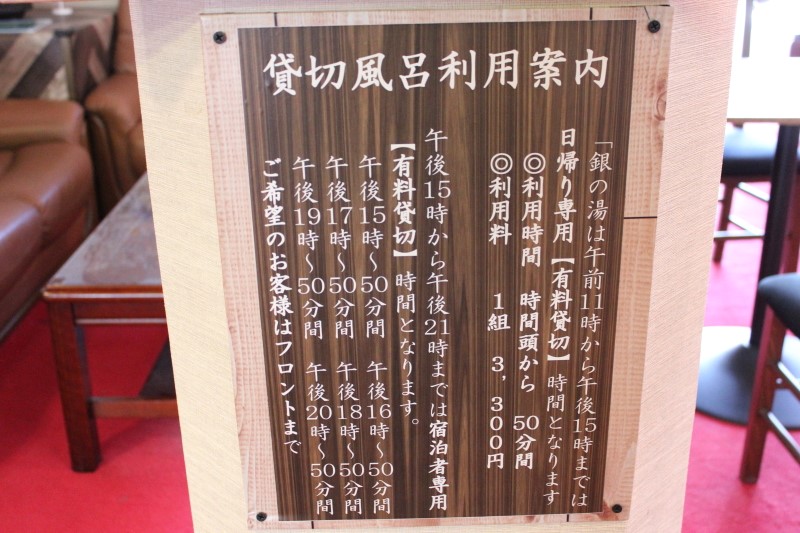 貸切風呂利用案内
「銀の湯は午前11時から午後15時までは
日帰り専用【有料貸切】時間となります
◎利用時間 時間頭から 50分間
◎利用料 1組 3,300円
午後15時から午後21時までは宿泊者専用
【有料貸切】時間となります。
午後15時〜50分間 午後16時〜50分間
午後17時〜50分間 午後18時〜50分間
午後19時〜50分間 午後20時〜50分間
ご希望のお客様はフロントまで